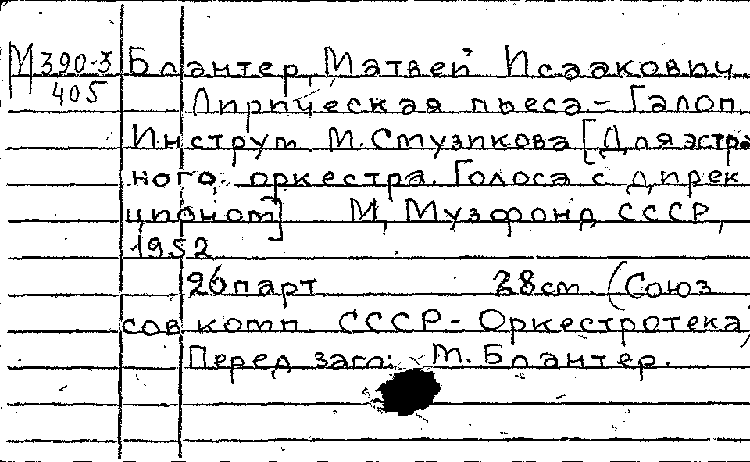 М 390-3 Блантер, Матвей Исаакович
405
Лирическая пьеса - Галоп.
Инструм. М. Стузикова [Для эстра
ного оркестра. Голоса с дирек
ционом] М, Музфонд СССР,
1952
26 парт 28 см. (Союз
сов комп СССР - Оркестротека)
Перед загл: М. Блантер.